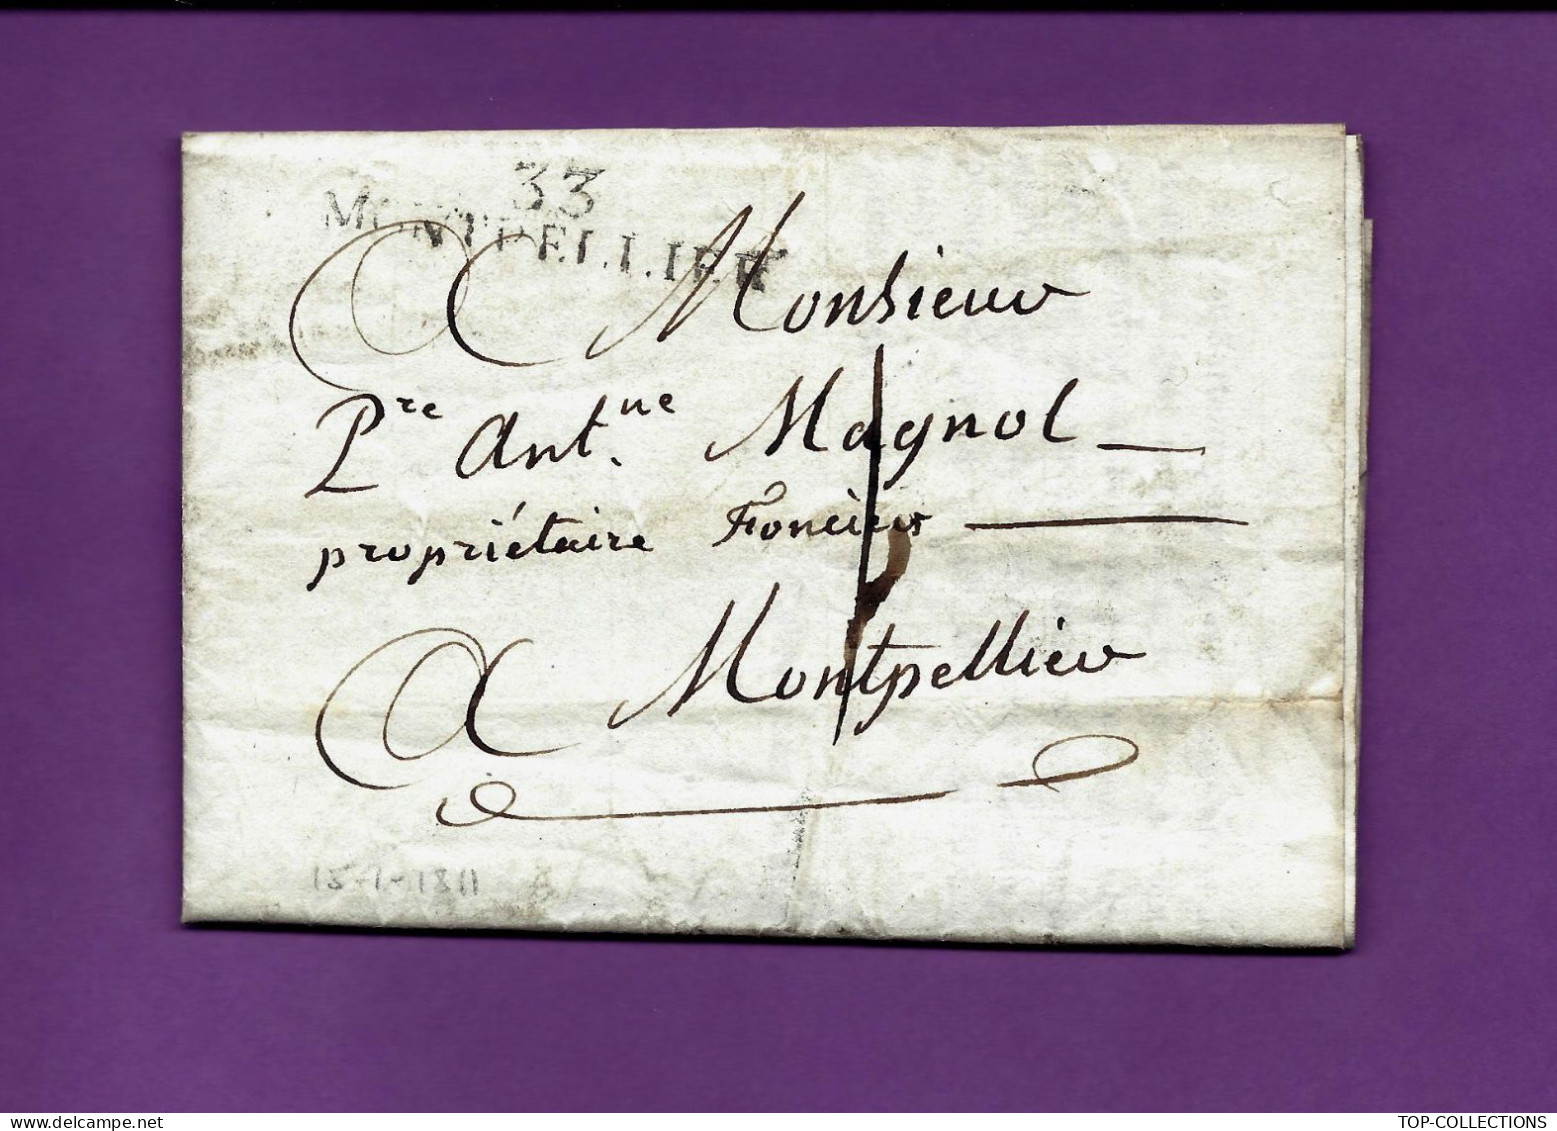 33
MONTPELLIER
A Monsieur
Pre Ant.ne Magnol
propriétaire Foncier
A Montpellier
15-1-1811
delcampe.net
TOP-COLLECTIONS